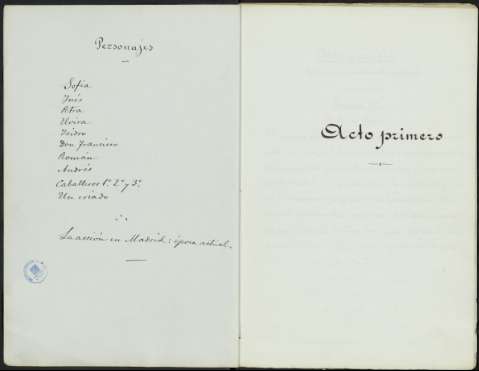 Personajes
Sofía
Inés
Petra
Elvira
Isidro
Don Francisco
Román
Andrés
Caballeros 1º 2º y 3º
Un criado
La acción en Madrid: época actual.
Acto primero